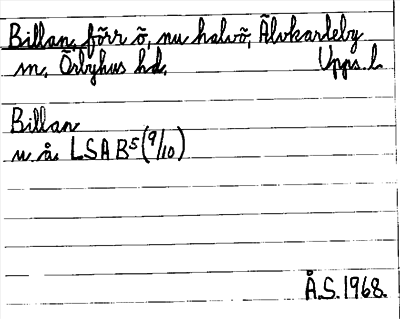 Billan, förr ö, nu halvö, Älvkarleby
sn, Örbyhus hd, Upps. l.
Billan
u. å. LSA B5 (9/10)
Å.S. 1968.